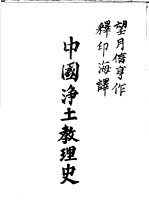 望月信亨作
釋印海譯
中國淨土教理史